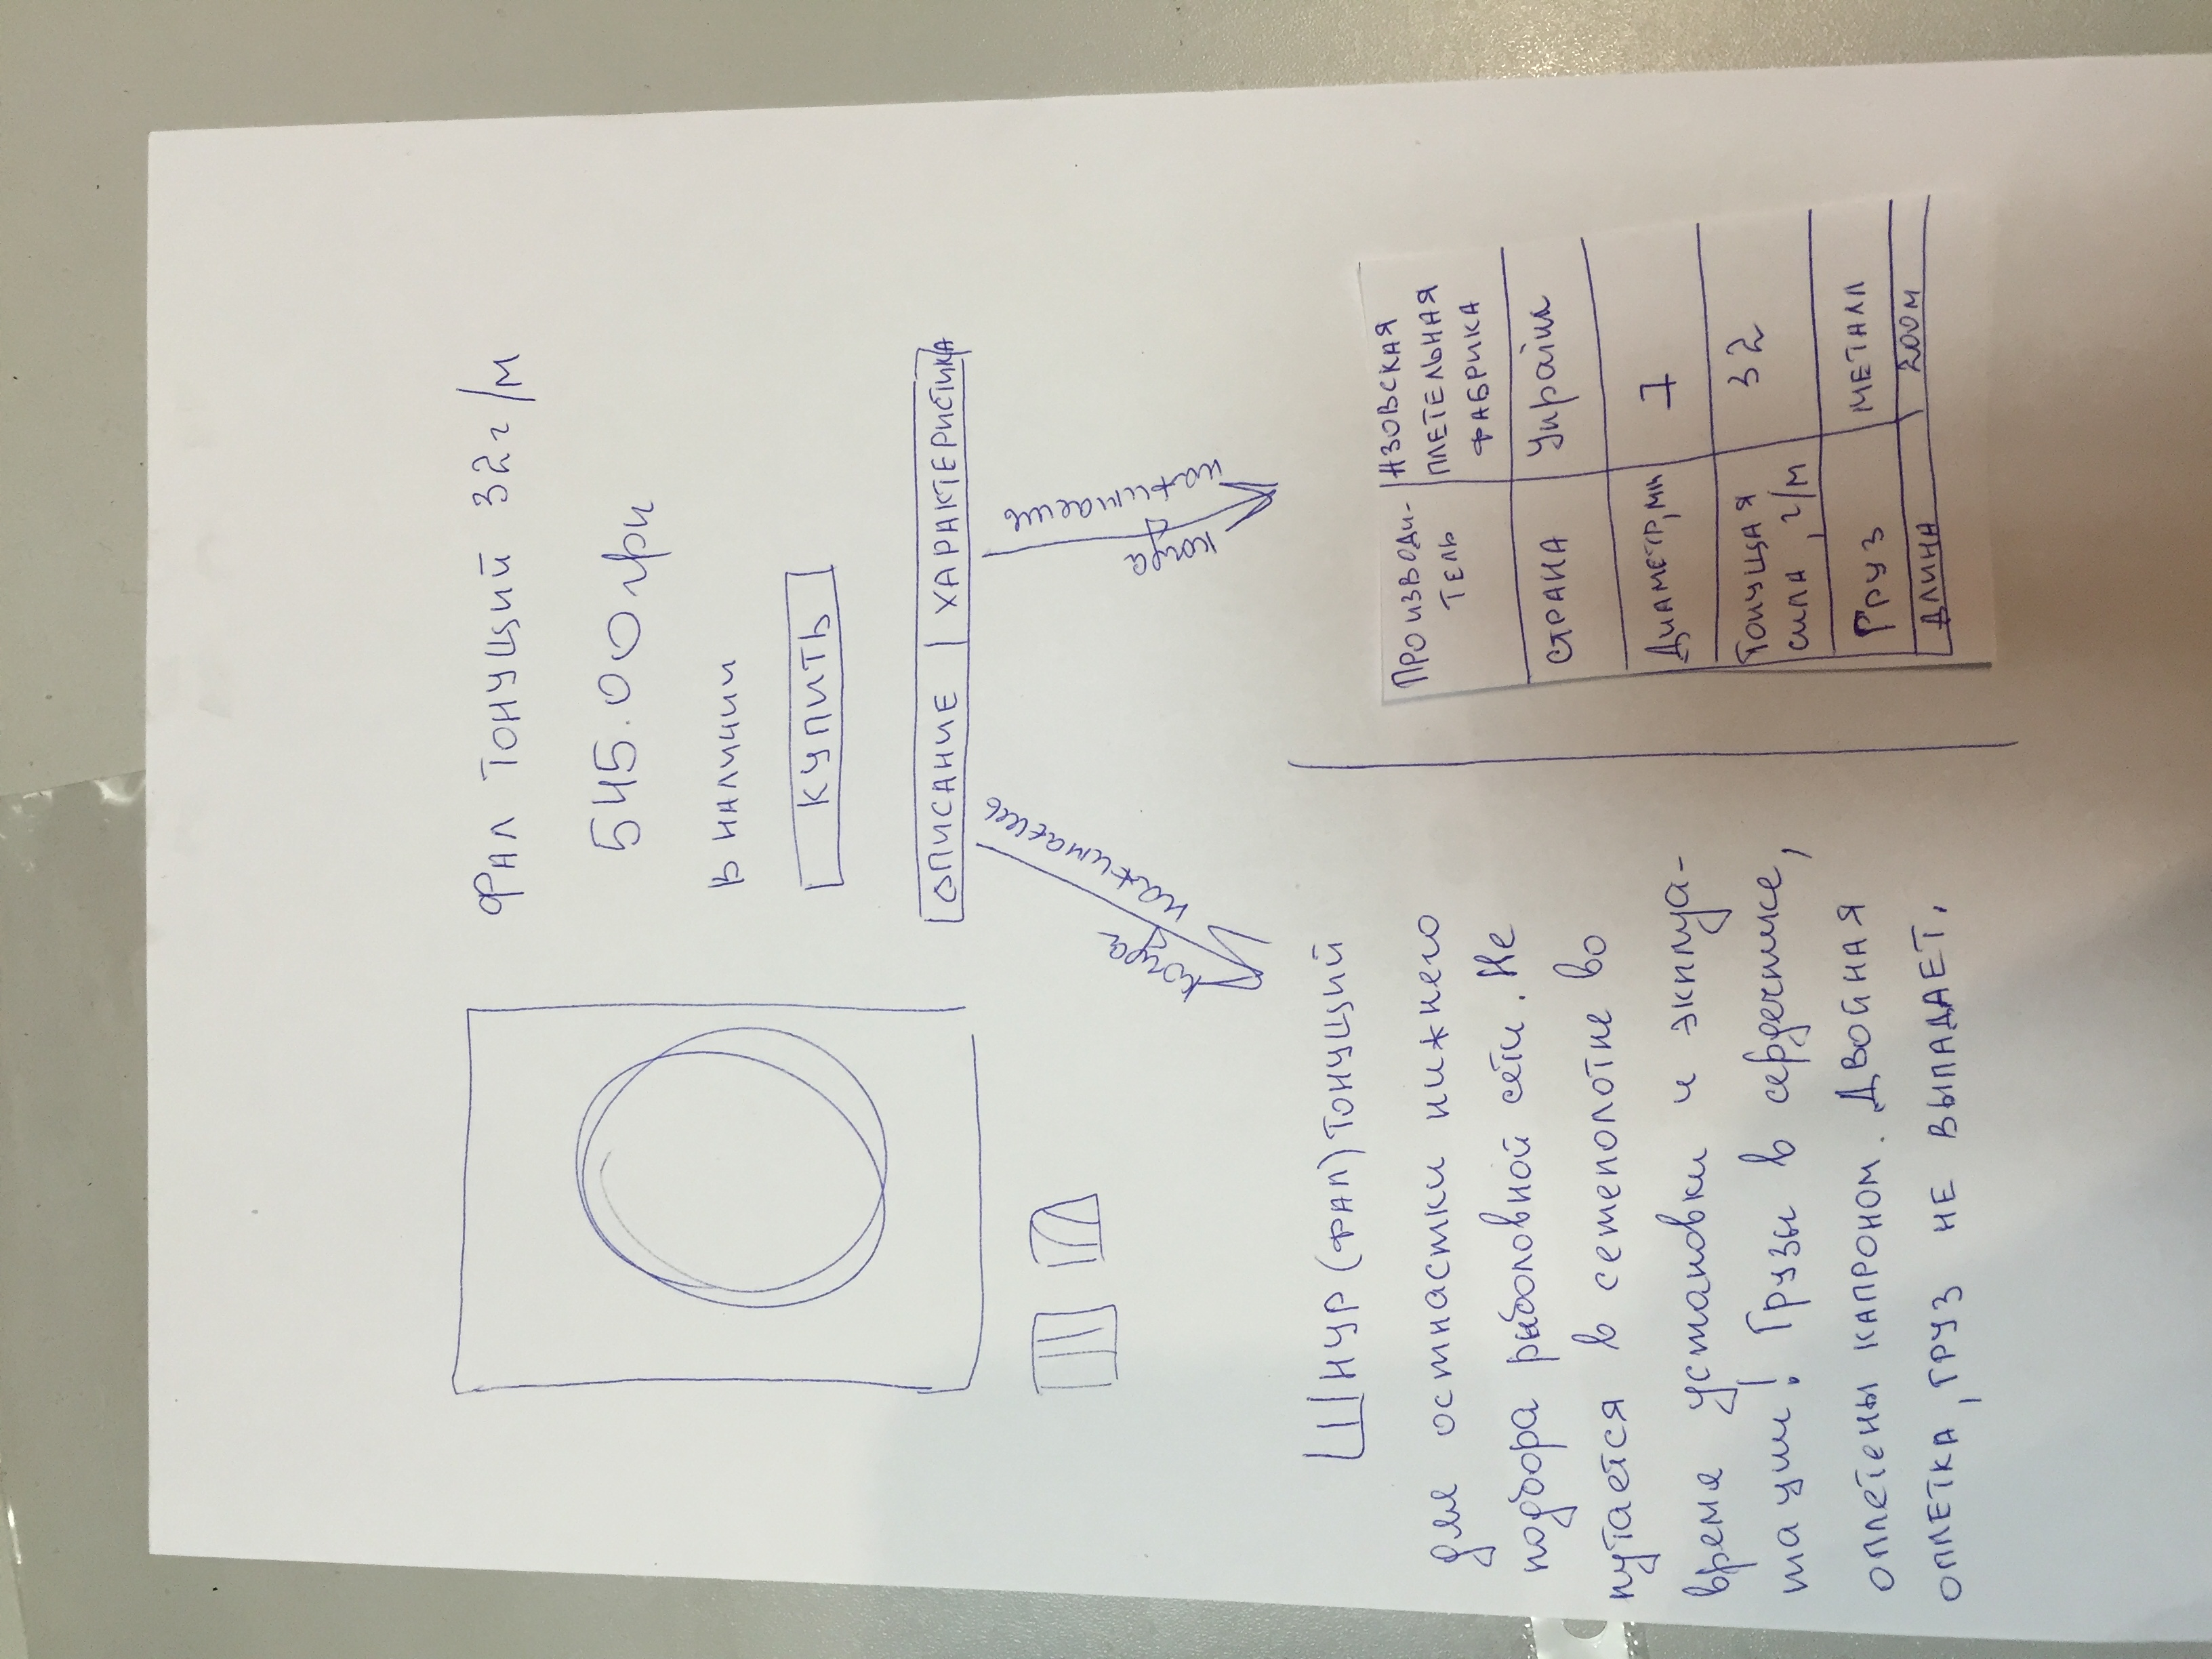 Фал тонущий 32г/м
545.00грн
в наличии
КУПИТЬ
ОПИСАНИЕ | ХАРАКТЕРИСТИКА
когда
нажимаешь
когда
нажимаешь
Шнур (фал) тонущий
для остнастки нижнего
подбора рыболовной сети. Не
путается в сетеполотне во
время установки и экплуа-
тации! Грузы в сердечнике,
оплетены капроном. Двойная
оплетка, груз не выпадает.
Производи-
тель
Азовская
плетельная
фабрика
страна
Україна
Диаметр, мм
7
Тонущая
сила, г/м
32
Груз
металл
длина
200м